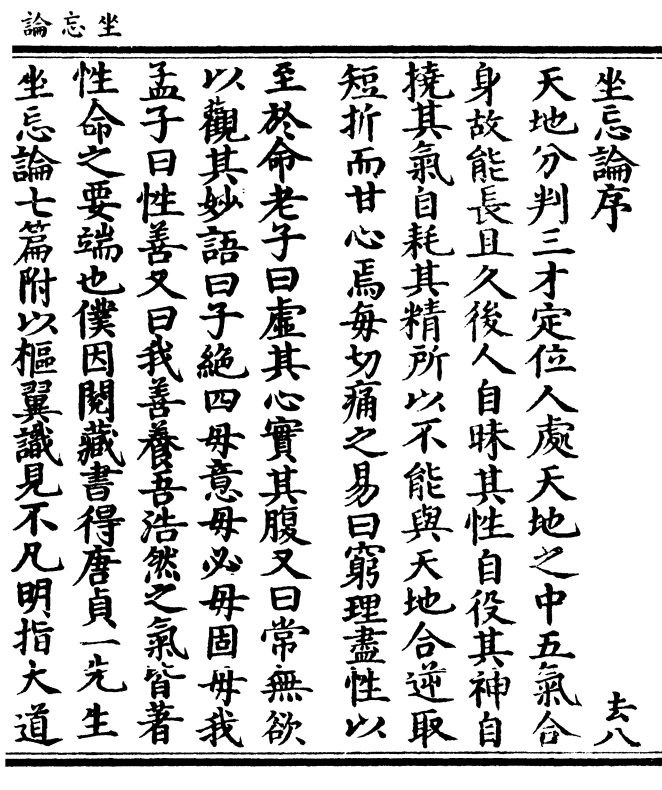 坐忘論
坐忘論序
去八
天地分判三才定位人處天地之中五氣合
身故能長且久後人自昧其性自役其神自
撓其氣自耗其精所以不能與天地合逆取
短折而甘心焉每切痛之易曰窮理盡性以
至於命老子曰虛其心實其腹又曰常無欲
以觀其妙語曰子絶四毋意毋必毋固毋我
孟子曰性善又曰我善養吾浩然之氣皆著
性命之要端也僕因閱藏書得唐貞一先生
坐忘論七篇附以樞翼識見不凡明指大道